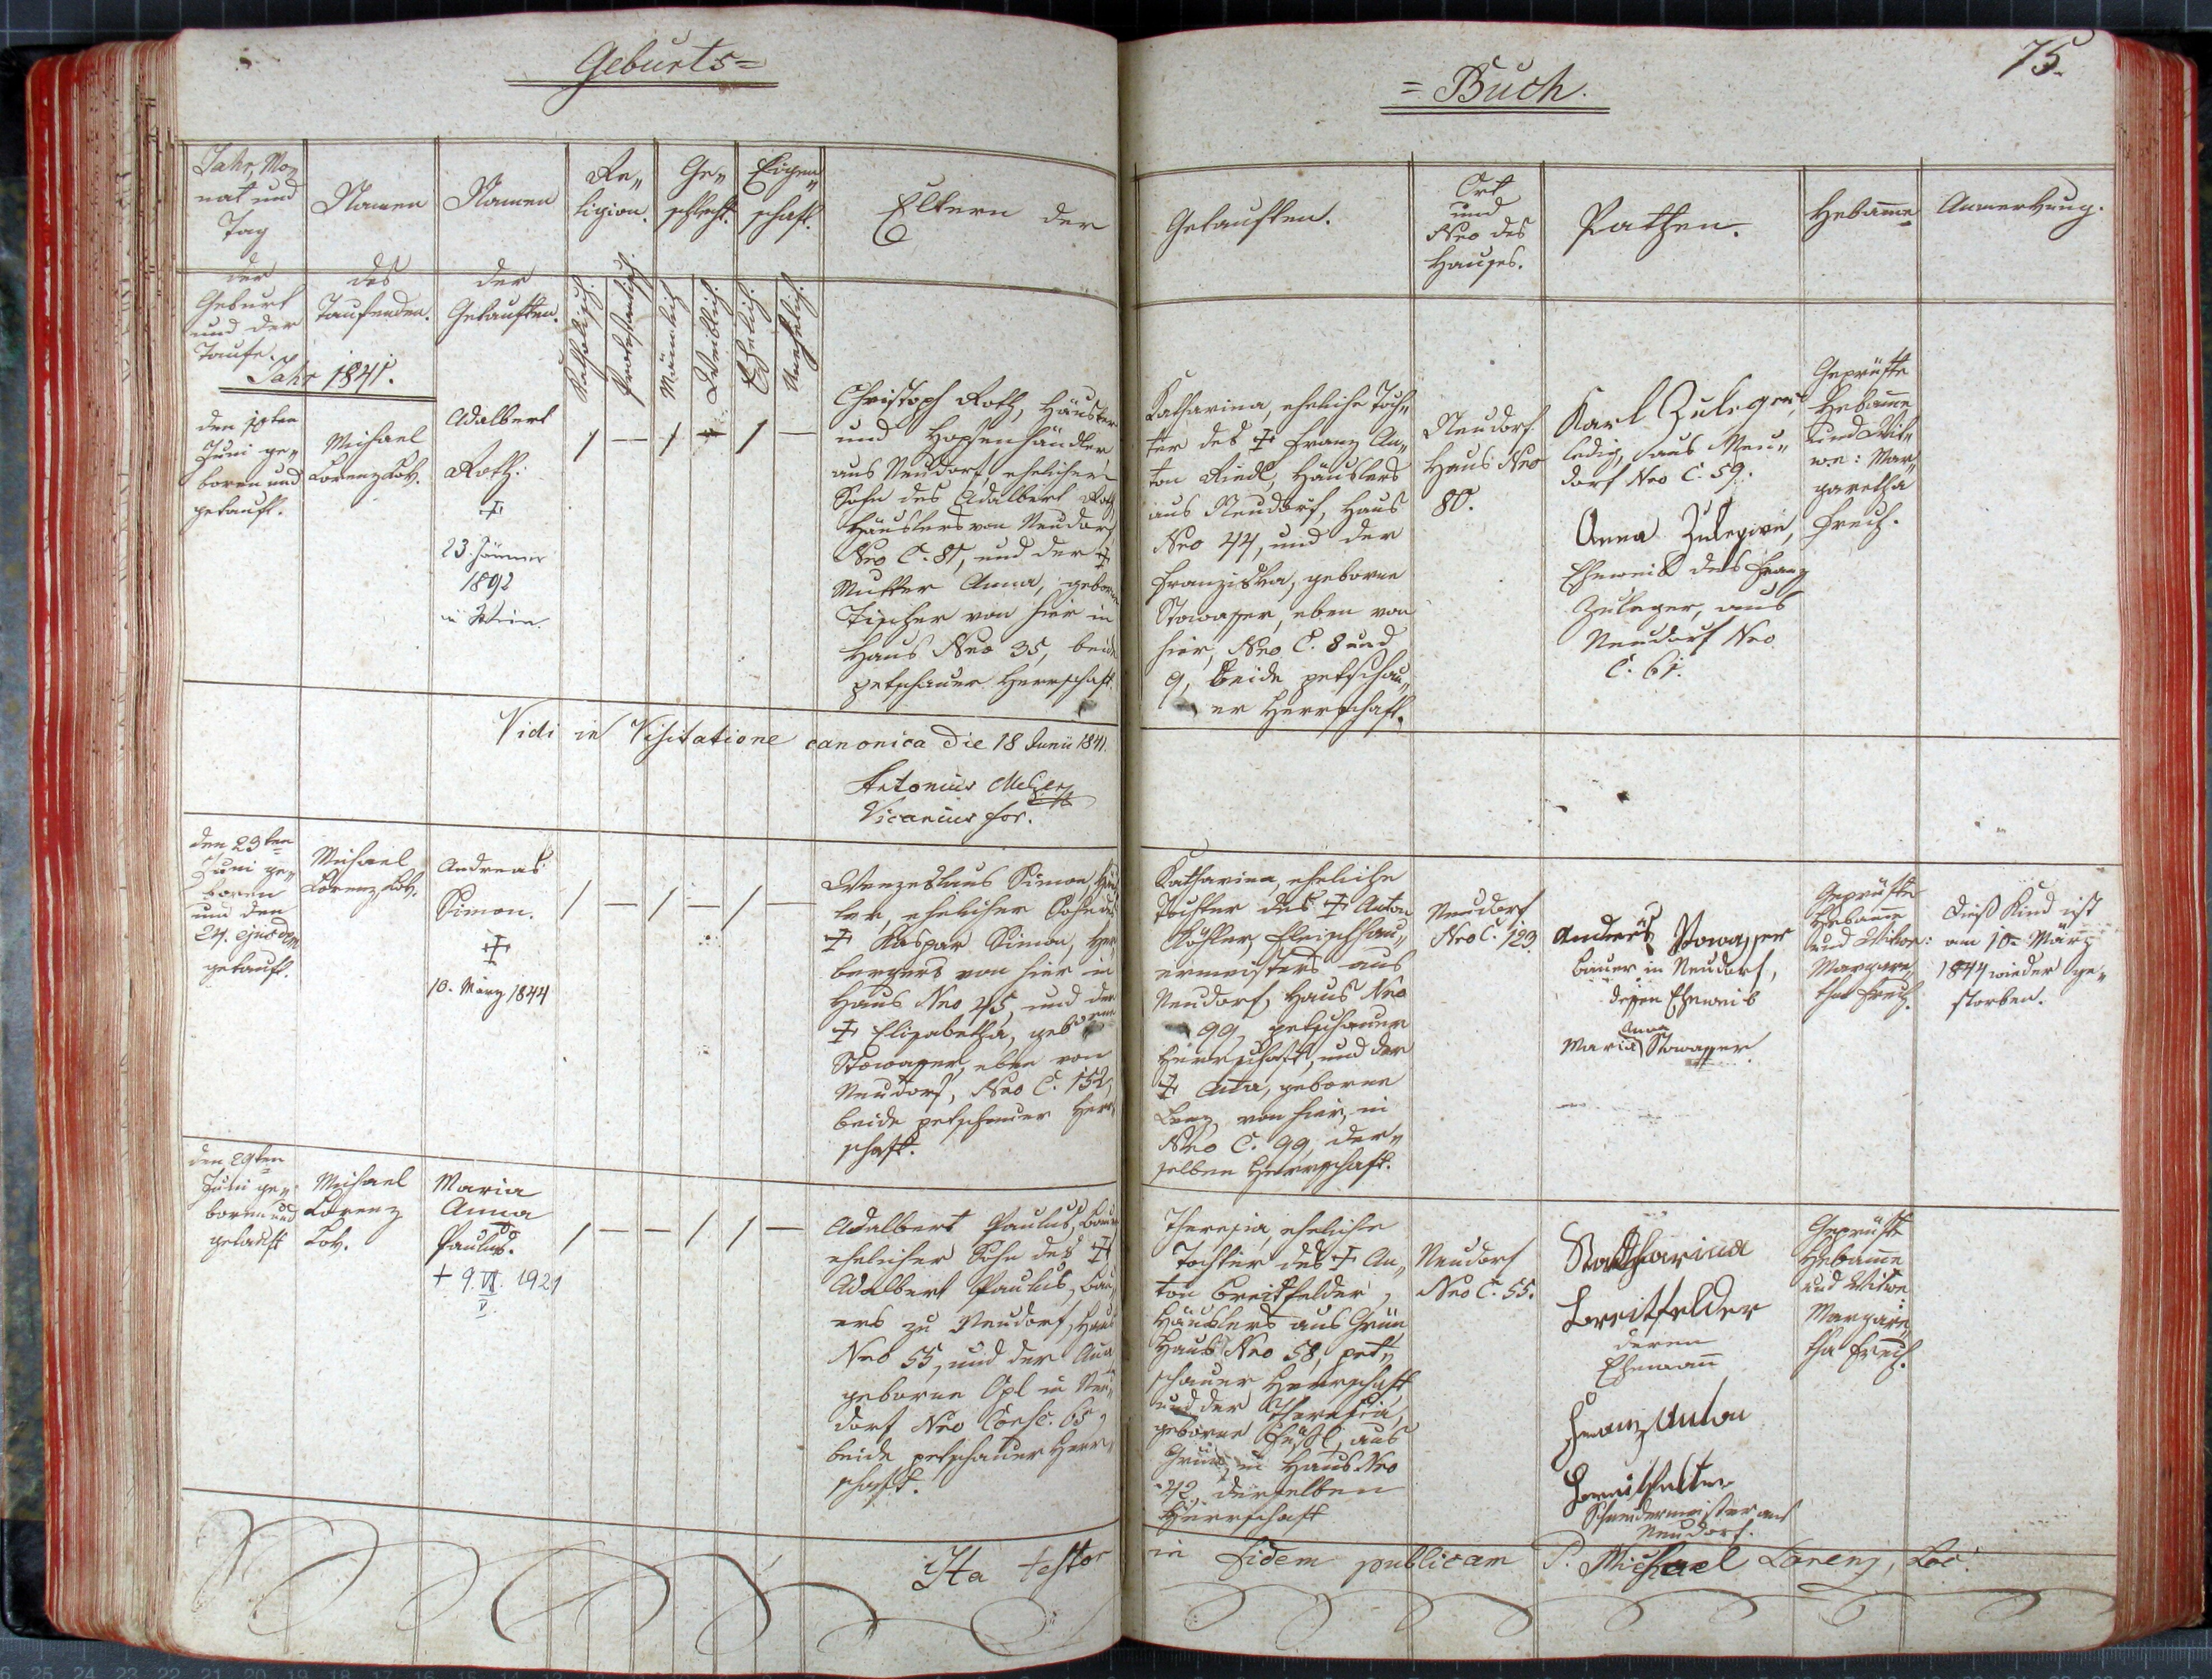 Geburts=
= Buch.
75.
Jahr, Mo„
nat und
Tag
der
Geburt
und der
Taufe.
Namen
des
Taufenden.
Namen
der
Getauften.
Re„
ligion.
Katholisch.
Protestantisch.
Ge„
schlecht.
Männlich
Weiblich.
Eigen„
schaft.
Ehelich.
Unehelich.
Eltern der
Getauften.
Ort
und
Nro des
Hauses.
Pathen.
Hebamme
Anmerkung.
Jahr 1841.
den 10ten
Juni ge„
boren und
getauft.
Michael
Lorenz Lok.
Adalbert
Roth.
‡
23. Jänner
1892
in Wien.
Christoph Roth, Häusler
und Hopfenhändler
aus Neudorf, ehelicher
Sohn des Adalbert Roth
Häuslers von Neudorf,
Nro C. 81, und der ‡
Mutter Anna, geborne
Tischer von hier in
Haus Nro 35, beide
petschauer Herrschaft.
Katharina, eheliche Toch„
ter des ‡ Franz An„
ton Riedl, Häuslers
aus Neudorf, Haus
Nro 44, und der
Franziska, geborne
Stowasser, eben von
hier, Nro C. 8 und
9, beide petschau„
er Herrschaft.
Neudorf
Haus Nro
80.
Karl Zuleger,
ledig, aus Neu„
dorf Nro C. 59.
Anna Zulegerin,
Eheweib des Franz
Zuleger, aus
Neudorf Nro
C. 61.
Geprüfte
Hebamme
und Wit„
we: Mar„
garetha
Frech.
Vidi in Visitatione canonica die 18 Junii 1841.
Antonius
Vicarius for.
den 23ten
Juni ge„
boren
und den
24. ejusdem
getauft.
Michael
Lorenz Lok.
Andreas
Simon.
‡
10. März 1844
Wenzeslaus Simon, Häus
ler, ehelicher Sohn des
‡ Kaspar Simon, Her„
bergers von hier in
Haus Nro 45, und der
‡ Elisabetha, geborne
Stowasser, eben von
Neudorf, Nro C. 152,
beide petschauer Herr„
schaft.
Katharina, eheliche
Tochter des ‡ Anton
Köhler, Fleischhau„
ermeisters aus
Neudorf, Haus Nro
99, petschauer
Herrschaft, und der
‡ Anna, geborne
Lenz, von hier, in
Nro C. 99, der„
selben Herrschaft.
Neudorf
Nro C. 123.
Andreas Stowasser
Bauer in Neudorf,
dessen Eheweib
Anna
Maria Stowasser
Geprüfte
Hebamme
und Witwe:
Margare„
tha Frech.
Dieß Kind ist
am 10. März
1844 wieder ge„
storben.
den 29ten
Juni ge„
boren und
getauft
Michael
Lorenz
Lok.
Maria
Anna
Paulus.
+ 9. VI. 1921
Adalbert Paulus, Bauer
ehelicher Sohn des ‡
Adalbert Paulus, Bau„
ers zu Neudorf, Haus
Nro 55, und der Anna
geborne Opl in Neu„
dorf Nro Consc. 65,
beide petschauer Herr„
schaft.
Theresia, eheliche
Tochter des ‡ An„
ton Breitfelder,
Häuslers aus Grün
Haus Nro 58, pet„
schauer Herrschaft,
und der Theresia,
geborne aus
Grün, in Haus Nro
42, derselben
Herrschaft
Neudorf
Nro C. 55.
Katharina
Breitfelder
deren
Ehemann
Franz Anton
Breitfelder
Schneidermeister aus
Neudorf.
Geprüfte
Hebamme
und Witwe
Margare„
tha Frech.
Ita testor
in fidem publicam P. Michael Lorenz, Loc.